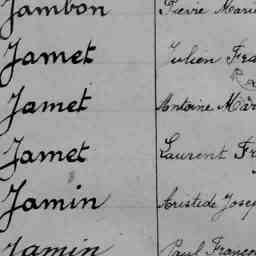 Jambon Pierre Marie
Jamet Julien Fra
Jamet Antoine Mar
Jamet Laurent Fr
Jamin Aristide Josep
Jamin Paul Franço